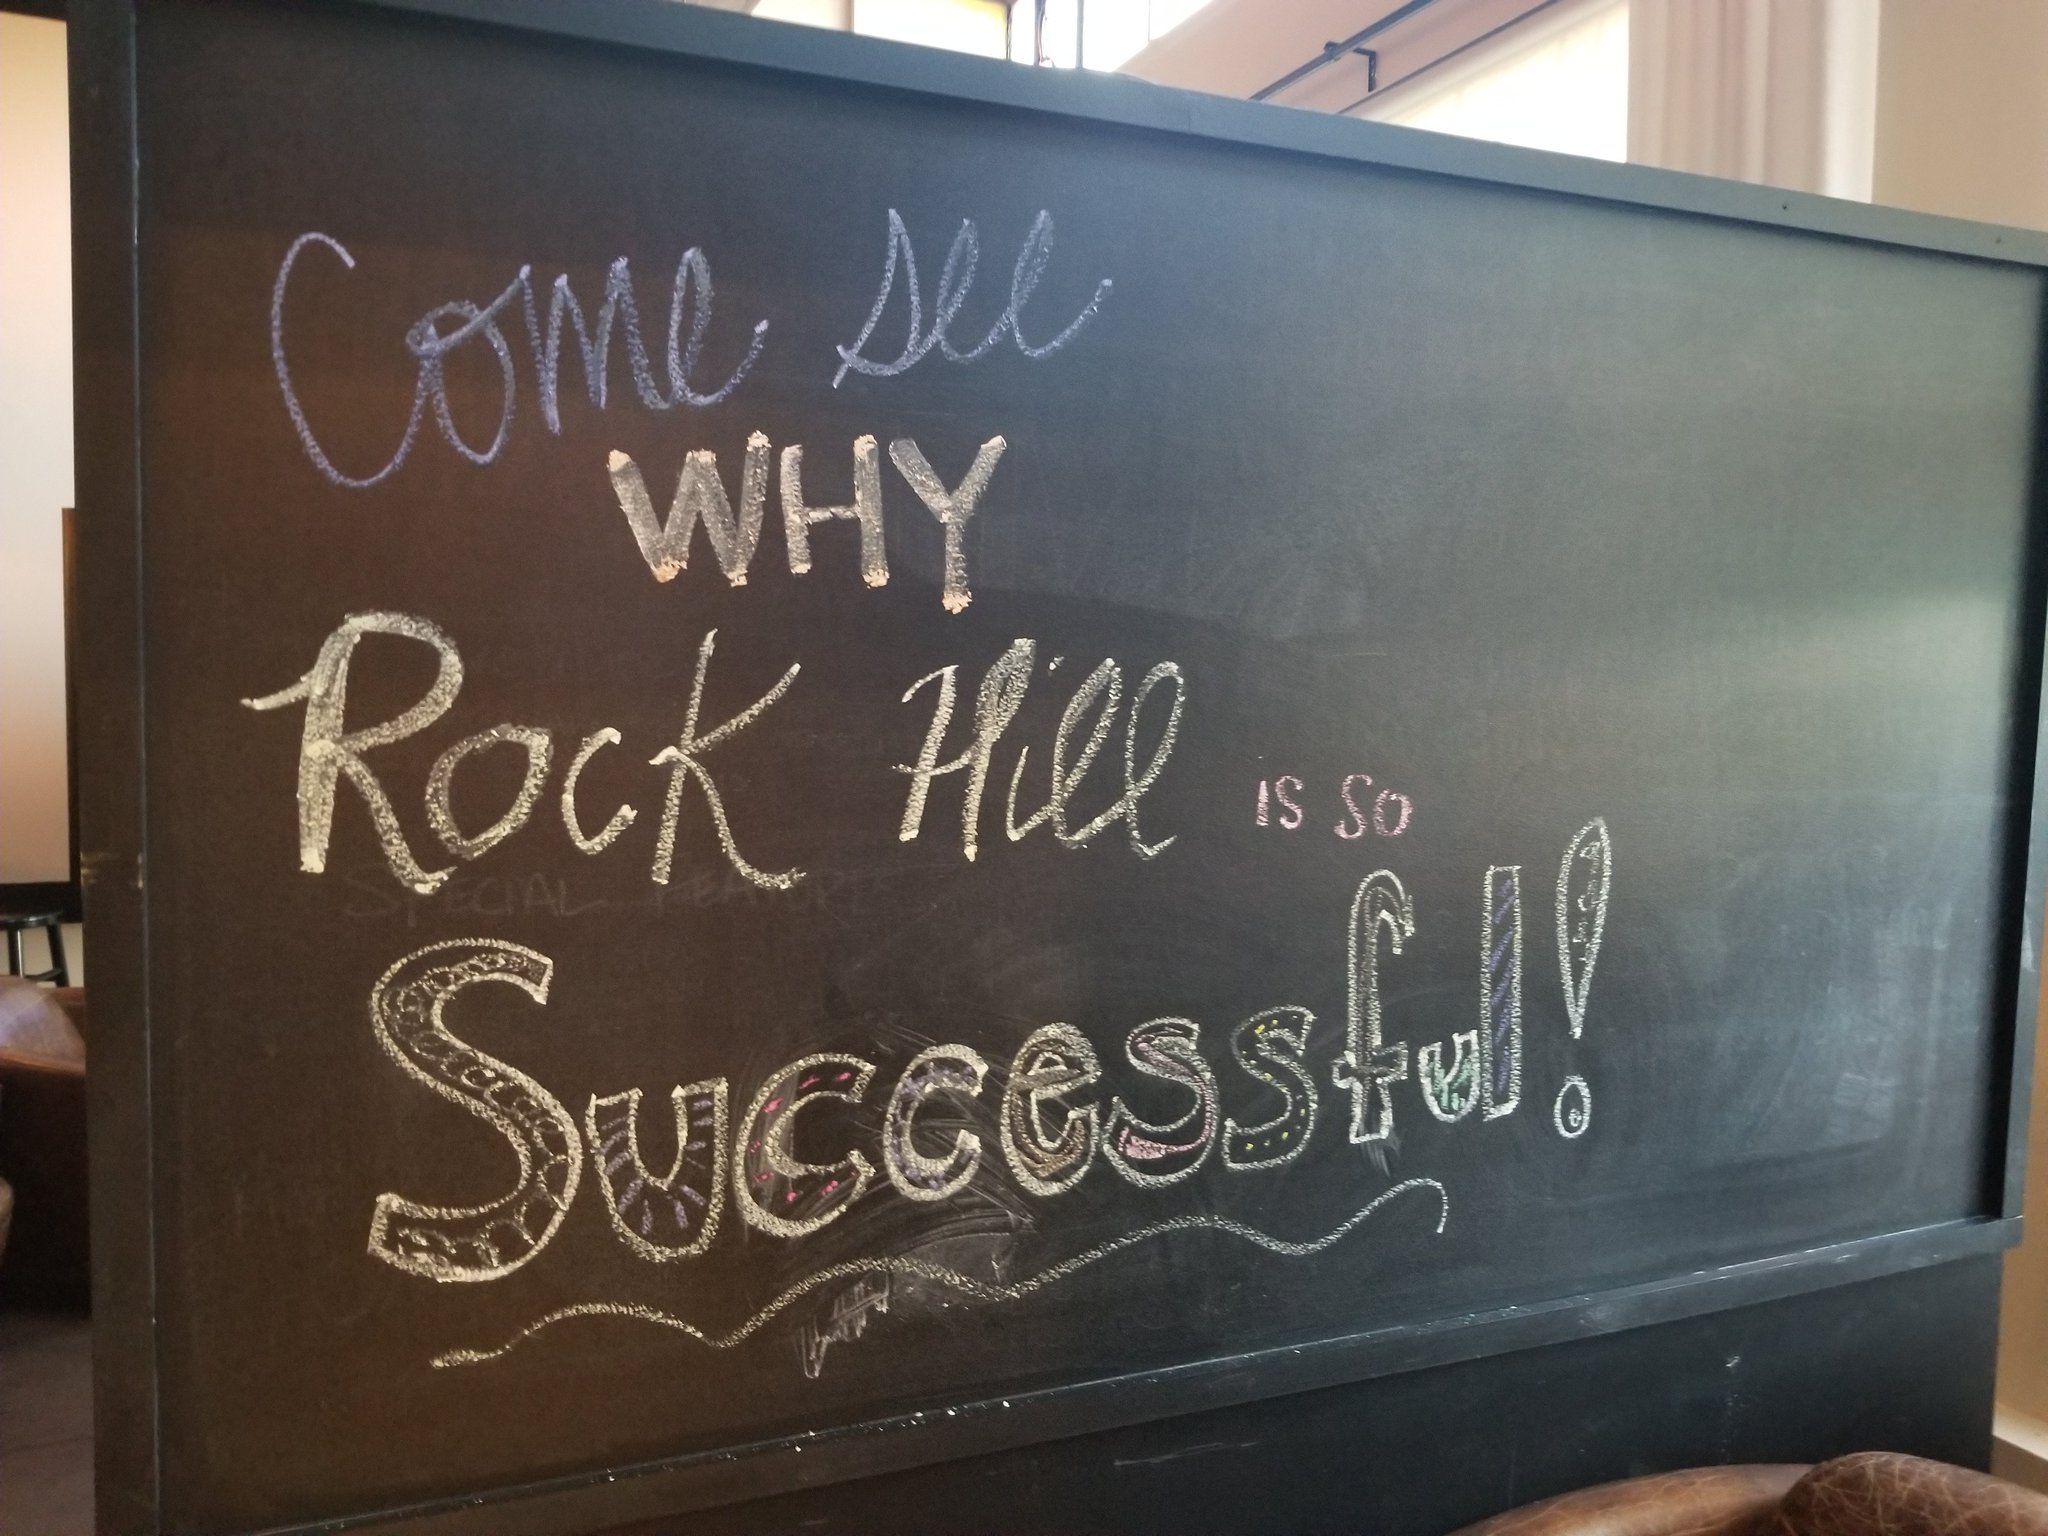 Come see
WHY
Rock Hill is so
Successful!